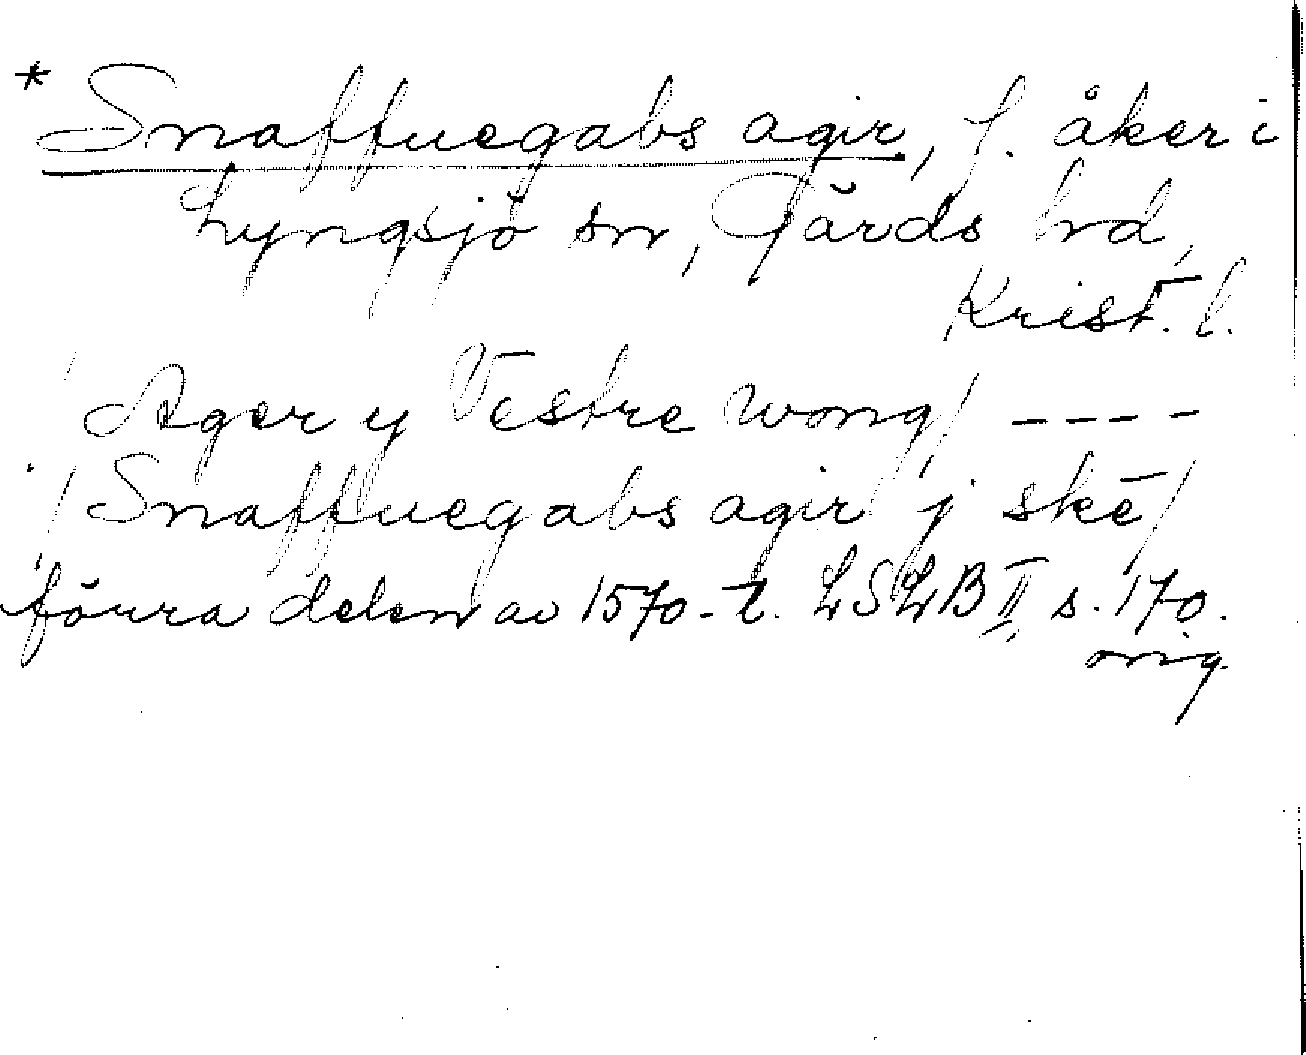 * Snaffuegabs agir, f. åker i
Lyngsjö sn, Gärds hd,
Krist. l.
Ager y Vestre wong / ----
/ Snaffuegabs agir j skē /
förra delen av 1570-t. LSLB II, s. 170.
orig.